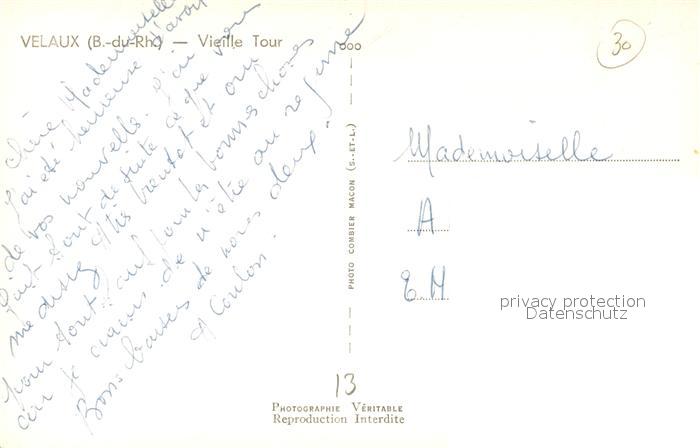 VELAUX (B.-du-Rh.) — Vieille Tour
Chère Mademoiselle
J'ai été heureuse d'avoir
de vos nouvelles. J'ai vu
tout de suite ce que vous
me disiez. A très bientôt et
pour tout sauf pour les bonnes choses
car je crains de n'être au régime
Bons baisers de nous deux.
Coulon.
30
Mademoiselle
A
E. M
PHOTO COMBIER MACON (S.-ET-L.)
privacy protection
Datenschutz
13
PHOTOGRAPHIE VÉRITABLE
Reproduction Interdite